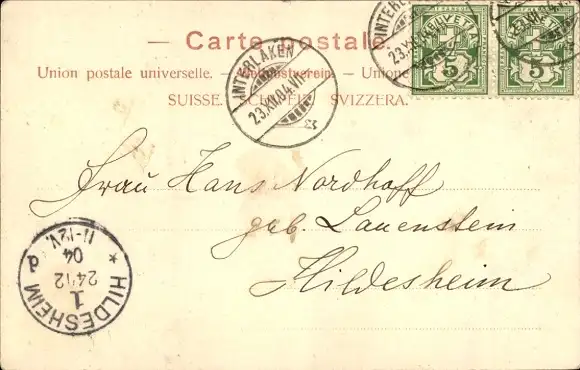 Carte postale.
Union postale universelle. — Weltpostverein. — Unione
SUISSE. SCHWEIZ. SVIZZERA.
INTERLAKEN
23.XII.04.VI
HELVETIA
5
5
INTERLAKEN
23.XII.04.VI
Frau Hans Nordhoff
geb. Lauenstein
Hildesheim
* HILDESHEIM * d
1
24 12
04
11-12V.